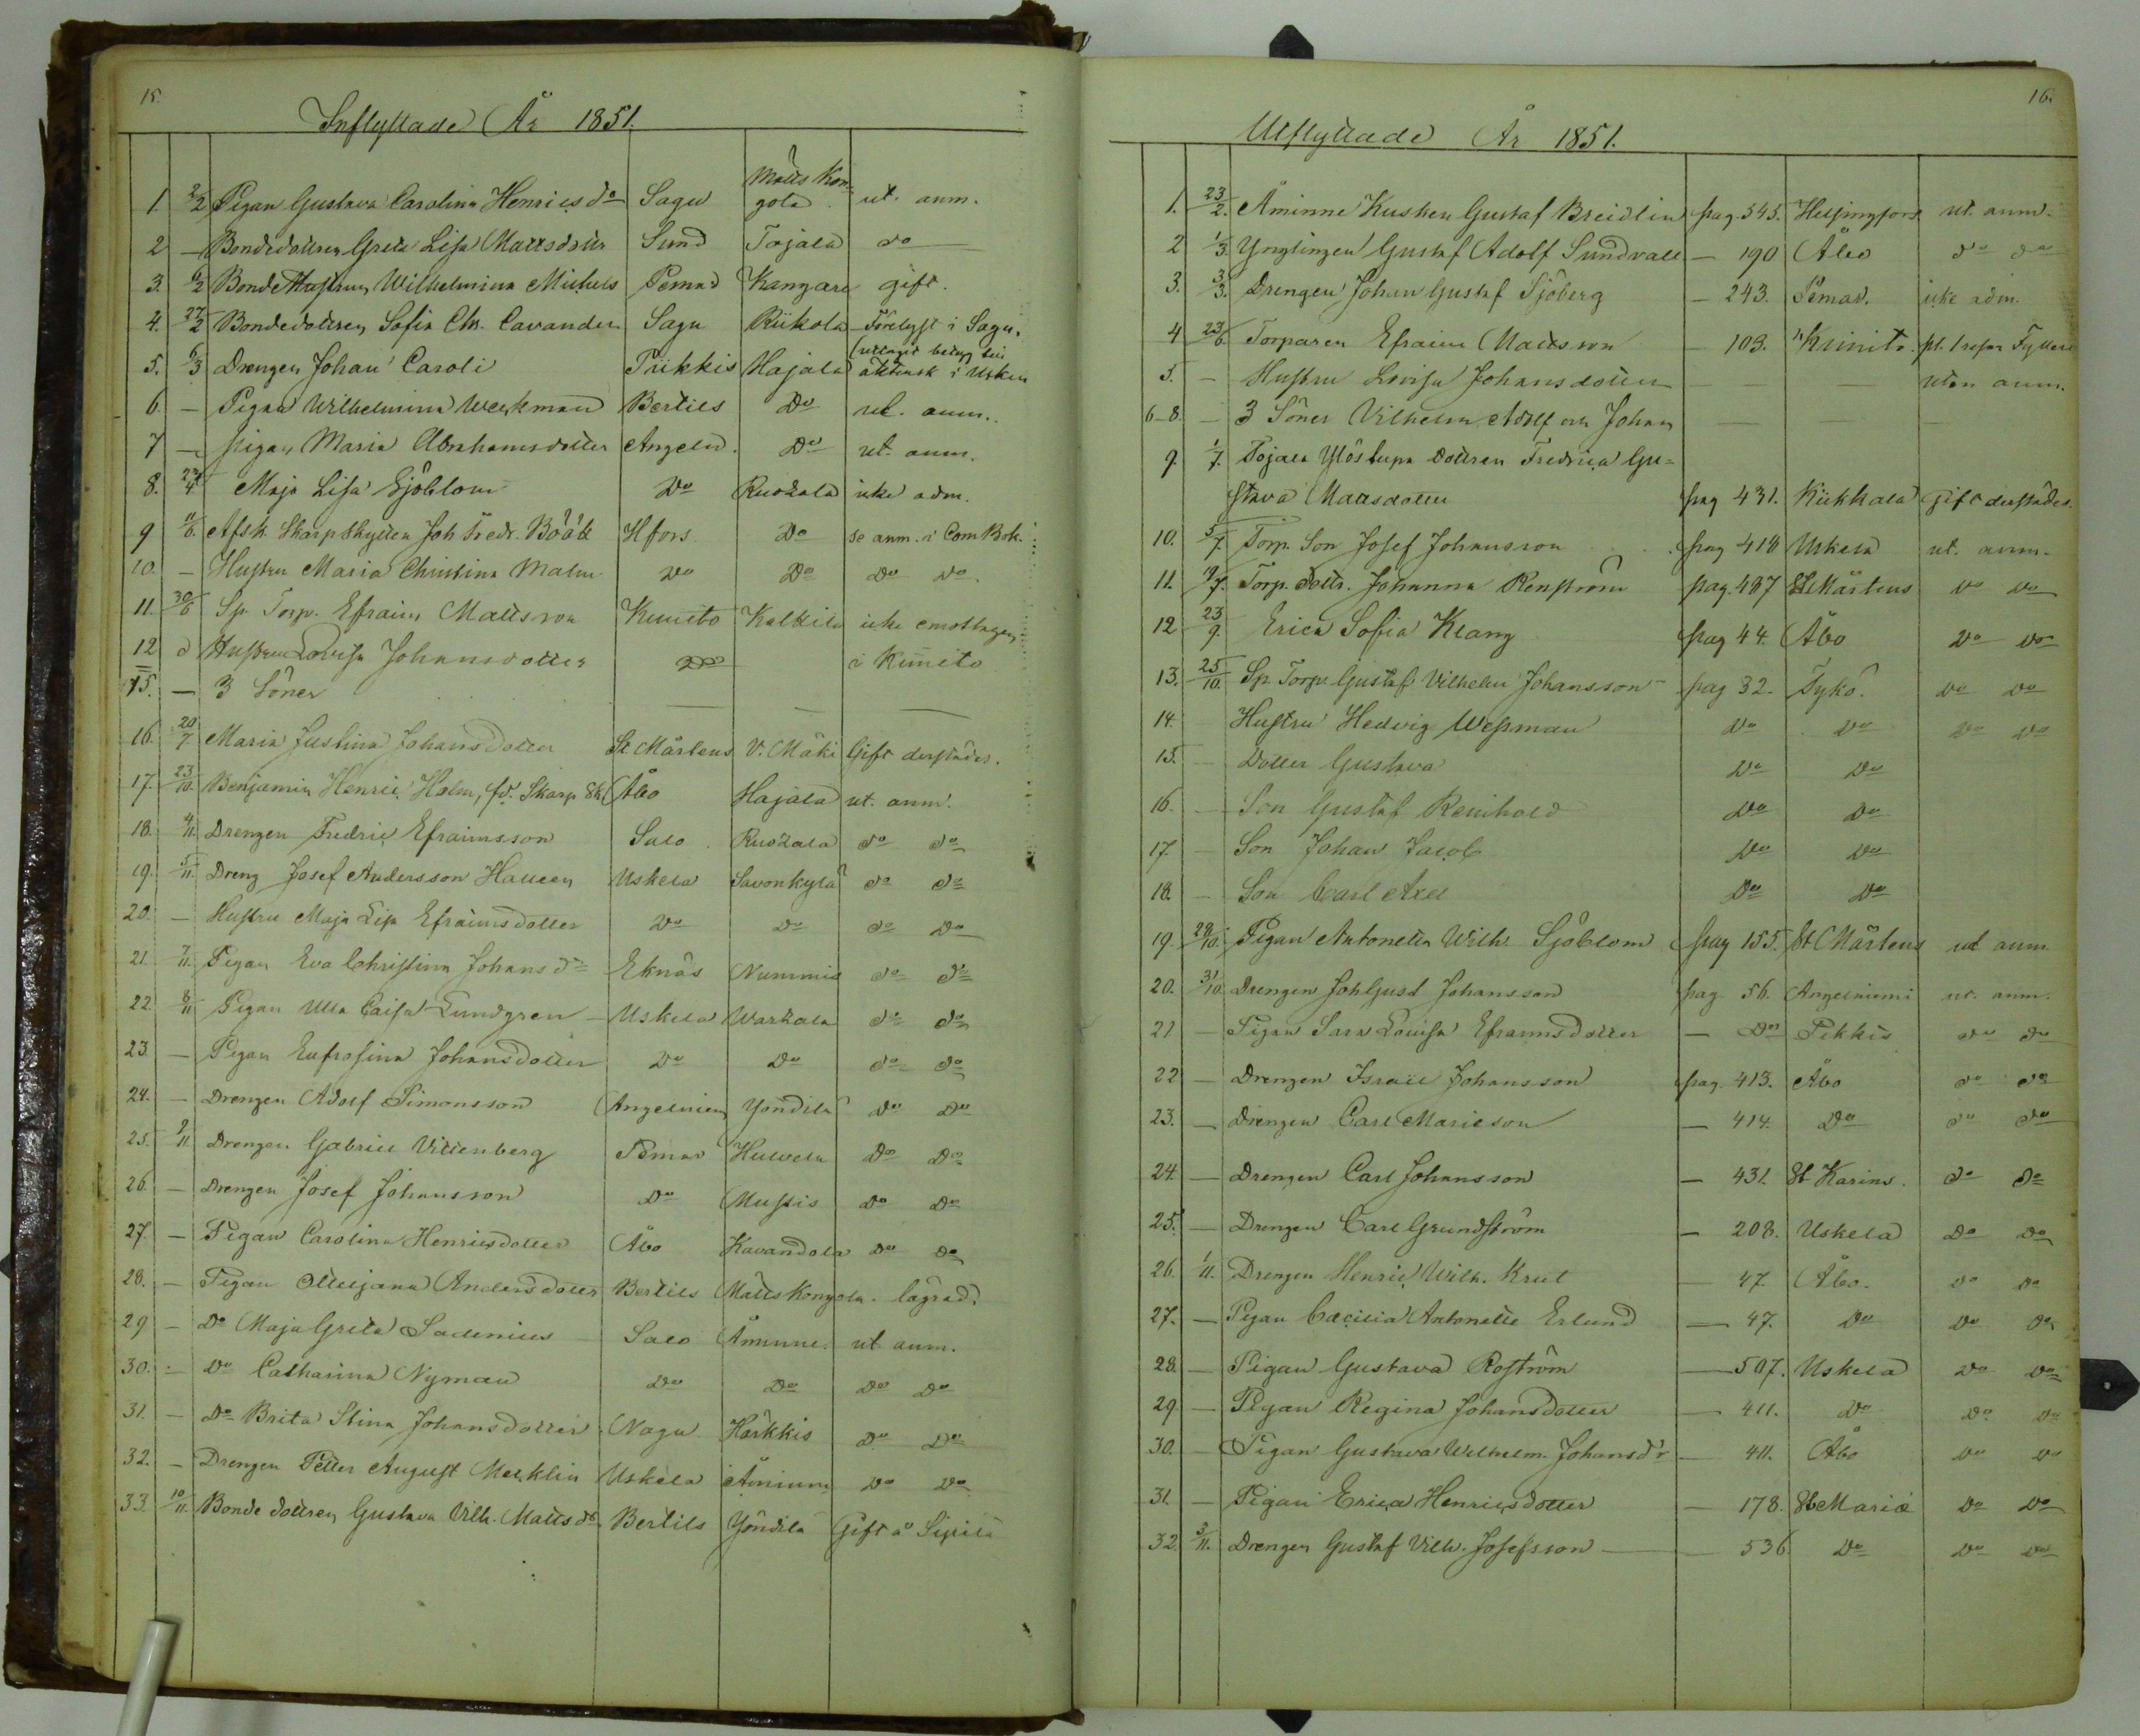 15.
Inflyttade År 1851.
1. 2/2 Pigan Gustava Carolina Henricsdr Sagu Mattskongola ut. anm.
2 — Bondedottren Greta Lisa Mattsdotter Sund Tojala do
3. 6/2 Bonde Hustrun Wilhelmina Michels Pemar Kangare gift.
4. 27/2 Bondedottren Sofia Ch. Cavander Sagu Riikola Förlyst i Sagu.
5. 6/3 Drengen Johan Caroli Piikkis Hajala (uttagit betyg till äktensk i Uskela
6. — Pigan Wilhelmina Weckman Bertils Do ut. anm.
7 — pigan Maria Abrahamsdotter Angeln. Do ut. anm.
8. 24/4 Maja Lisa Sjöblom Do Ruokala icke adm.
9 11/6. Afsk. Skarpskytten Joh Fredr. Böök Hfors Do se anm. i Com Bok.
10. — Hustru Maria Christina Malm Do Do Do Do
11. 30/6 Sp. Torp. Efraim Mattsson Kimito Kalkila icke emottagen
12 d Hustru Lovisa Johansdotter Do i Kimito
15. — 3 Söner — — —
16. 20/7 Maria Justina Johansdotter St Mårtens V. Mäki Gift derstädes.
17. 23/10. Benjamin Henric Holm, fd. Skarp Sk Åbo Hajala ut. anm.
18. 4/11 Drengen Fredric Efraimsson Salo Ruokala do do
19. 5/11. Dreng Josef Andersson Halleen Uskela Savonkylä do do
20. — Hustru Maja Lisa Efraimsdotter Do Do do Do
21. 7/11. Pigan Eva Christina Johansdr Eknäs Nummis do do
22. 8/11 Pigan Ulla Caisa Lundgren Uskela Warkala do do
23. — Pigan Eufrosina Johansdotter Do Do do do
24. — Drengen Adolf Simonsson Angelniem Yöndilä Do Do
25. 9/11 Drengen Gabriel Vittenberg Pemar Hulvela Do Do
26. — Drengen Josef Johansson Do Mustis Do Do
27. — Pigan Carolina Henricsdotter Åbo Kavandola Do Do
28. — Pigan Ottiljana Andersdotter Bertils Mattskongola.
29 — Do Maja Greta Sadenius Salo Åminne. ut anm.
30. — Do Catharina Nyman Do Do Do Do
31. — Do Brita Stina Johansdotter Nagu Härkkis Do Do
32. — Drengen Petter August Mecklin Uskela Åminne Do Do
33. 10/11. Bonde dottren Gustava Vilh. Mattsdr Bertils Yöndilä Gift å Sipilä
16.
Utflyttade År 1851.
1. 23/2. Åminne Kusken Gustaf Breidlin pag. 545. Helsingfors ut. anm.
2 1/3. Ynglingen Gustaf Adolf Sundvall — 190 Åbo do do
3. 3/3. Drengen Johan Gustaf Sjöberg — 243. Pemar. icke adm.
4 23/6. Torparen Efraim Mattsson — 103. Kimito.
5. — Hustru Lovisa Johansdotter — — utan anm.
6-8. — 3 Söner Vilhelm, Adolf och Johan — — —
9. 1/7. Tojala Ylöstupa dottren Fredrica Gu-
stava Mattsdotter pag 431. Kiikkala Gift derstädes.
10. 5/7. Torp. Son Josef Johansson pag 418 Uskela ut. anm.
11. 19/7. Torp. dottr. Johanna Renström pag. 487 St Mårtens Do Do
12 23/9. Erica Sofia Klang pag 44. Åbo Do Do
13. 25/10. Sp. Torp. Gustaf Vilhelm Johansson pag 32. Tykö. Do Do
14. Hustru Hedvig Wesman Do Do Do Do
15. — Dotter Gustava Do Do
16. — Son Gustaf Reinhold Do Do
17. — Son Johan Jacob Do Do
18. — Son Carl Axel Do Do
19. 28/10. Pigan Antonetta Wilh. Sjöblom pag 155. St Mårtens ut anm.
20. 31/10. Drengen Joh Gust Johansson pag. 56. Angelniemi ut. anm.
21 — Pigan Sara Lovisa Efraimsdotter — Do Pikkis do do
22 — Drengen Israel Johansson pag. 413. Åbo do do
23. — Drengen Carl Marieson — 414. Do do do
24. — Drengen Carl Johansson — 431. St Karins. do do
25. — Drengen Carl Grundström — 208. Uskela Do Do
26. 1/11. Drengen Henric Wilh. Krut — 47. Åbo. Do Do
27. — Pigan Cæcilia Antonette Erlund — 47. Do Do Do
28. — Pigan Gustava Roström — 507. Uskela Do Do
29. — Pigan Regina Johansdotter — 411. Do Do Do
30. — Pigan Gustava Wilhelm. Johansdr — 411. Åbo Do Do
31. — Pigan Erica Henricsdotter — 178. St Mariæ Do Do
32. 3/11. Drengen Gustaf Vilh. Josefsson — 536 Do Do Do